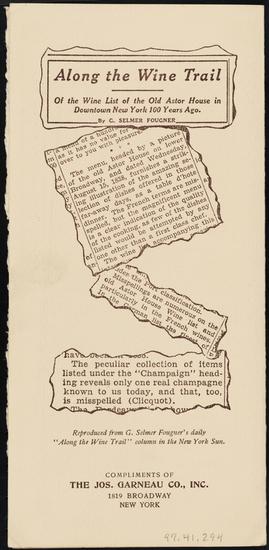 Along the Wine Trail
Of the Wine List of the Old Astor House in
Downtown New York 100 Years Ago.
By G. SELMER FOUGNER
as it has no value for
over to you with pleasure.
* * *
The menu, headed by a picture
of the old Astor House on lower
Broadway, and dated Wednesday,
August 15, 1838, furnishes a strik-
ing illustration of the amazing se-
lection of dishes offered in those
far-away days, as a table d'hote
dinner. The French terms are mis-
spelled, but the magnificent menu
is a clear indication of the quality
of the cooking, as few of the dishes
listed would be attempted by any
one other than a first class chef.
The wine list accompanying this
under the Port classification.
Misspellings are numerous on the
old Astor House Wine list and
particularly in the French wines.
in the German list, has
The peculiar collection of items
listed under the "Champaign" head-
ing reveals only one real champagne
known to us today, and that, too,
is misspelled (Clicquot).
Reproduced from G. Selmer Fougner's daily
"Along the Wine Trail" column in the New York Sun.
COMPLIMENTS OF
THE JOS. GARNEAU CO., INC.
1819 BROADWAY
NEW YORK
97.41.294